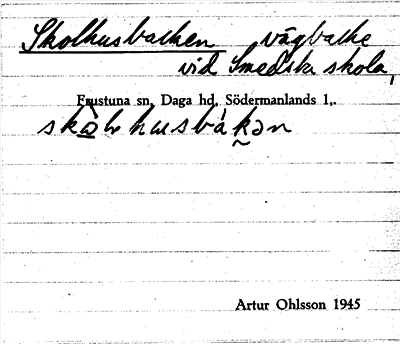 Skolhusbacken vägbacke
vid Smedska skola,
Frustuna sn, Daga hd, Södermanlands l.
Artur Ohlsson 1945